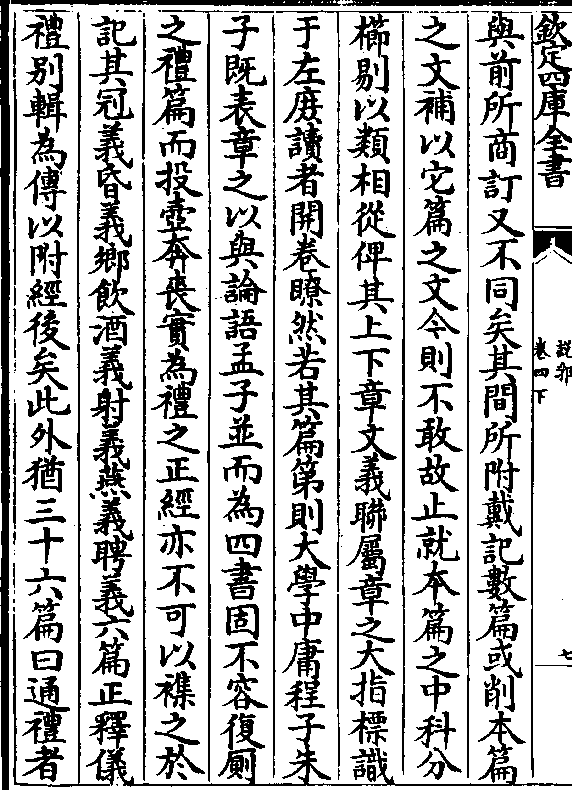 欽定四庫全書
說郛
卷四下
七
與前所商訂又不同矣其間所附戴記數篇或削本篇
之文補以它篇之文今則不敢故止就本篇之中科分
櫛剔以類相從俾其上下章文義聯屬章之大指標識
于左庶讀者開卷瞭然若其篇第則大學中庸程子朱
子既表章之以與論語孟子並而為四書固不容復厠
之禮篇而投壺奔喪實為禮之正經亦不可以襍之於
記其冠義昏義鄉飲酒義射義燕義聘義六篇正釋儀
禮別輯為傳以附經後矣此外猶三十六篇曰通禮者